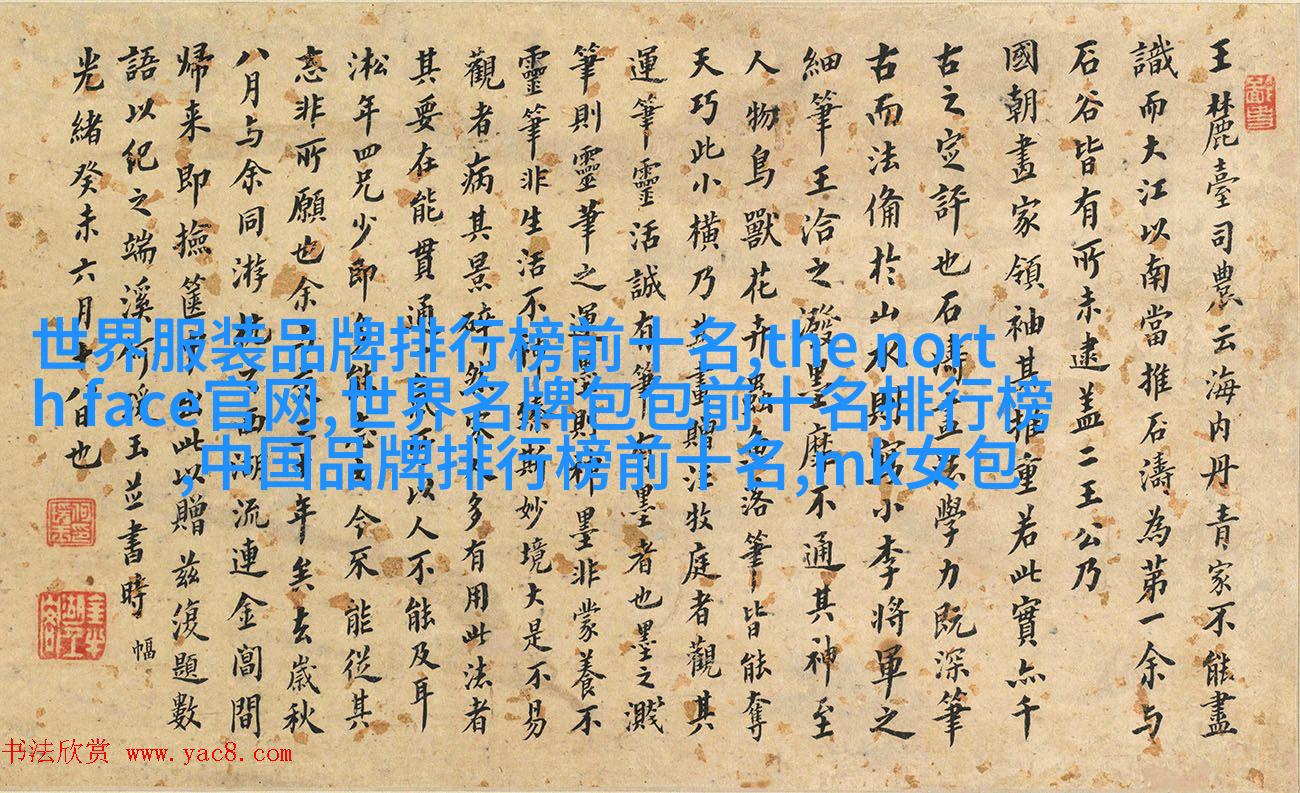 王麓臺司農云海内丹青家不能盡
識而大江以南當推石濤為第一余与
石谷皆有所未逮盖二王公乃
國朝畫家領袖其推重若此實点千
古之定評也石濤畫學力既深筆
古而法俻於山水則宗小李將軍之
細筆王洽之潑墨靡不通其神至
人物鳥獸花卉蟲魚落筆皆能奪
天巧此小橫乃其畫贈江牧庭者觀其
運筆靈活誠有筆有墨者也墨之濺
筆則靈筆之運墨則神墨非蒙養不
靈筆非生活不神斯妙境大是不易
觀者病其景碎然宋人多有用此法者
其要在能貫通以人不能及耳
淞年四兄少即能今不能從其
志非所願也余年矣去歲秋
八月与余同游西湖流連金閶間
歸来即撿篋出此以贈兹復題數
語以纪之端溪何瑗玉並書時
幅
光緒癸未六月十八日也
世界服装品牌排行榜前十名,the nort
h face官网,世界名牌包包前十名排行榜
,中国品牌排行榜前十名,mk女包
书法欣赏 www.yac8.com